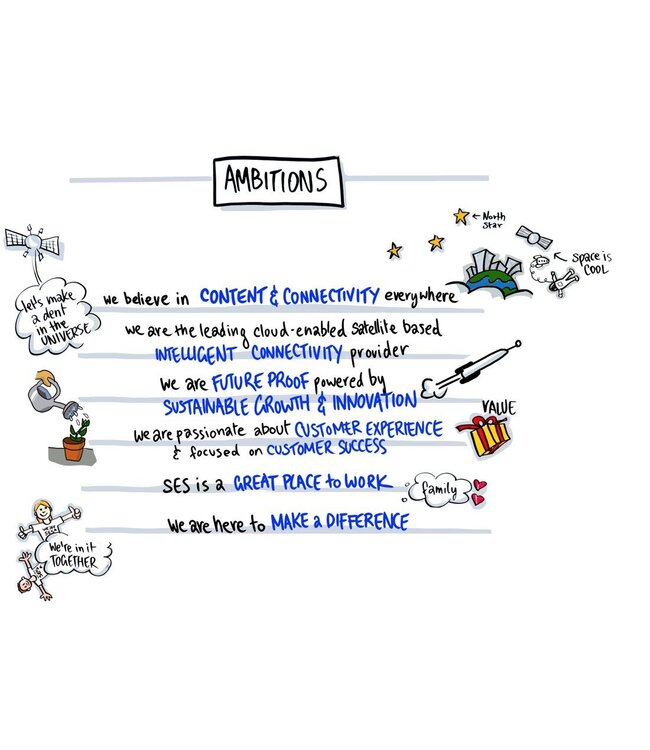 AMBITIONS
← North
star
space is
COOL
let's make
a dent
in the
UNIVERSE
we believe in CONTENT & CONNECTIVITY everywhere
we are the leading cloud-enabled satellite based
INTELLIGENT CONNECTIVITY provider
we are FUTURE PROOF powered by
SUSTAINABLE GROWTH & INNOVATION
VALUE
we are passionate about CUSTOMER EXPERIENCE
& focused on CUSTOMER SUCCESS
SES is a GREAT PLACE to WORK
family
we are here to MAKE a DIFFERENCE
We're in it
TOGETHER